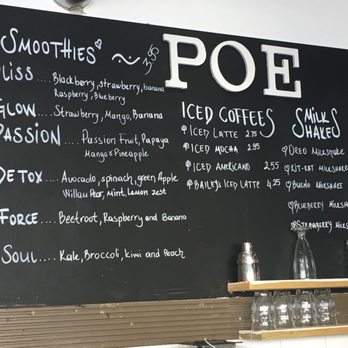 POE
Smoothies
3.95
Bliss .... Blackberry, strawberry, banana
Raspberry, Blueberry
Glow .... Strawberry, Mango, Banana
Passion .... Passion Fruit, Papaya
Mango & Pineapple
Detox .... Avocado, spinach, green Apple
Pear, Mint, Lemon zest
Force .... Beetroot, Raspberry and Banana
Soul .... Kale, Broccoli, kiwi and Peach
Iced Coffees
Iced Latte 2.75
Iced Mocha 2.95
Iced Americano 2.55
Bailey's Iced Latte 4.25
Milk
Shakes
Oreo Milkshake
Kit-Kat Milkshake
Bueno Milkshake
Blueberry Milkshake
Strawberry Milkshake